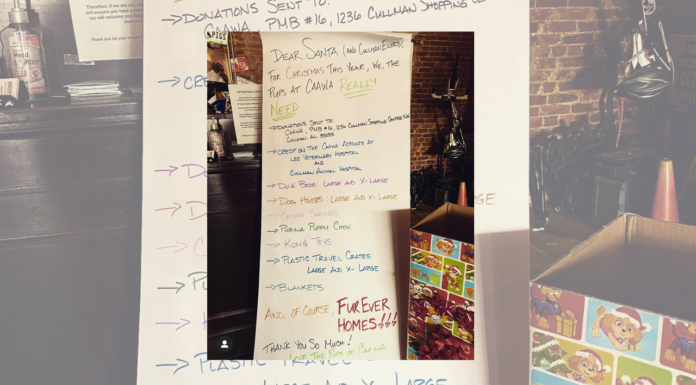 DEAR SANTA (AND CULLMAN ELVES),
FOR CHRISTMAS THIS YEAR, WE, THE
PUPS AT CAAWA REALLY
NEED
→DONATIONS SENT TO:
CAAWA, PMB #16, 1236 CULLMAN SHOPPING CENTER NW
CULLMAN, AL 35055
→CREDIT ON THE CAAWA ACCOUNTS AT:
LEE VETERINARY HOSPITAL
AND
CULLMAN ANIMAL HOSPITAL
→DOG BEDS: LARGE AND X-LARGE
→DOG HOUSES: LARGE AND X-LARGE
→PURINA PUPPY CHOW
→KONG TOYS
→PLASTIC TRAVEL CRATES:
LARGE AND X-LARGE
→BLANKETS
AND, OF COURSE, FUREVER
HOMES!!!
THANK YOU SO MUCH!
LOVE THE PUPS OF CAAWA
→DONATIONS SENT TO:
CAAWA, PMB #16, 1236 CULLMAN SHOPPING CE
Thank you for your